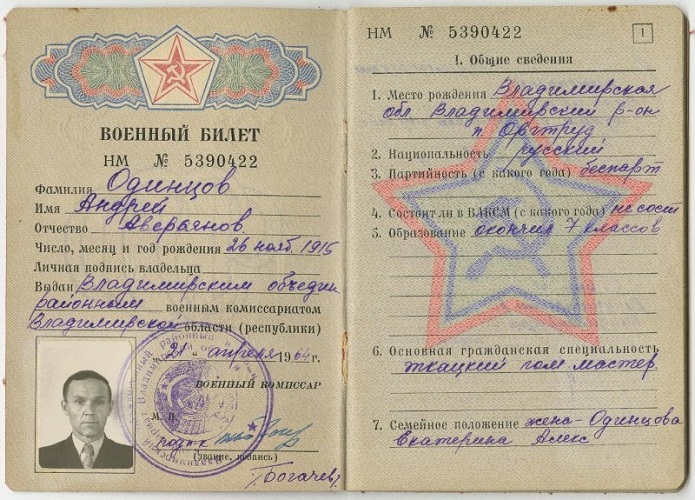 ВОЕННЫЙ БИЛЕТ
НМ № 5390422
Фамилия Одинцов
Имя Андрей
Отчество Аверьянов
Число, месяц и год рождения 26 нояб. 1915
Личная подпись владельца
Выдан Владимирским объедин
районным военным комиссариатом
Владимирской области (республики)
"21" апреля 1964 г.
ВОЕННЫЙ КОМИССАР
М. П.
(звание, подпись)
Богачев
НМ № 5390422
1
I. Общие сведения
1. Место рождения Владимирская
обл Владимирский р-он
п. Оргтруд
2. Национальность русский
3. Партийность (с какого года) беспарт
4. Состоит ли в ВЛКСМ (с какого года) не сост
5. Образование окончил 7 классов
6. Основная гражданская специальность
ткацкий пом мастер
7. Семейное положение жена-Одинцова
Екатерина Алекс